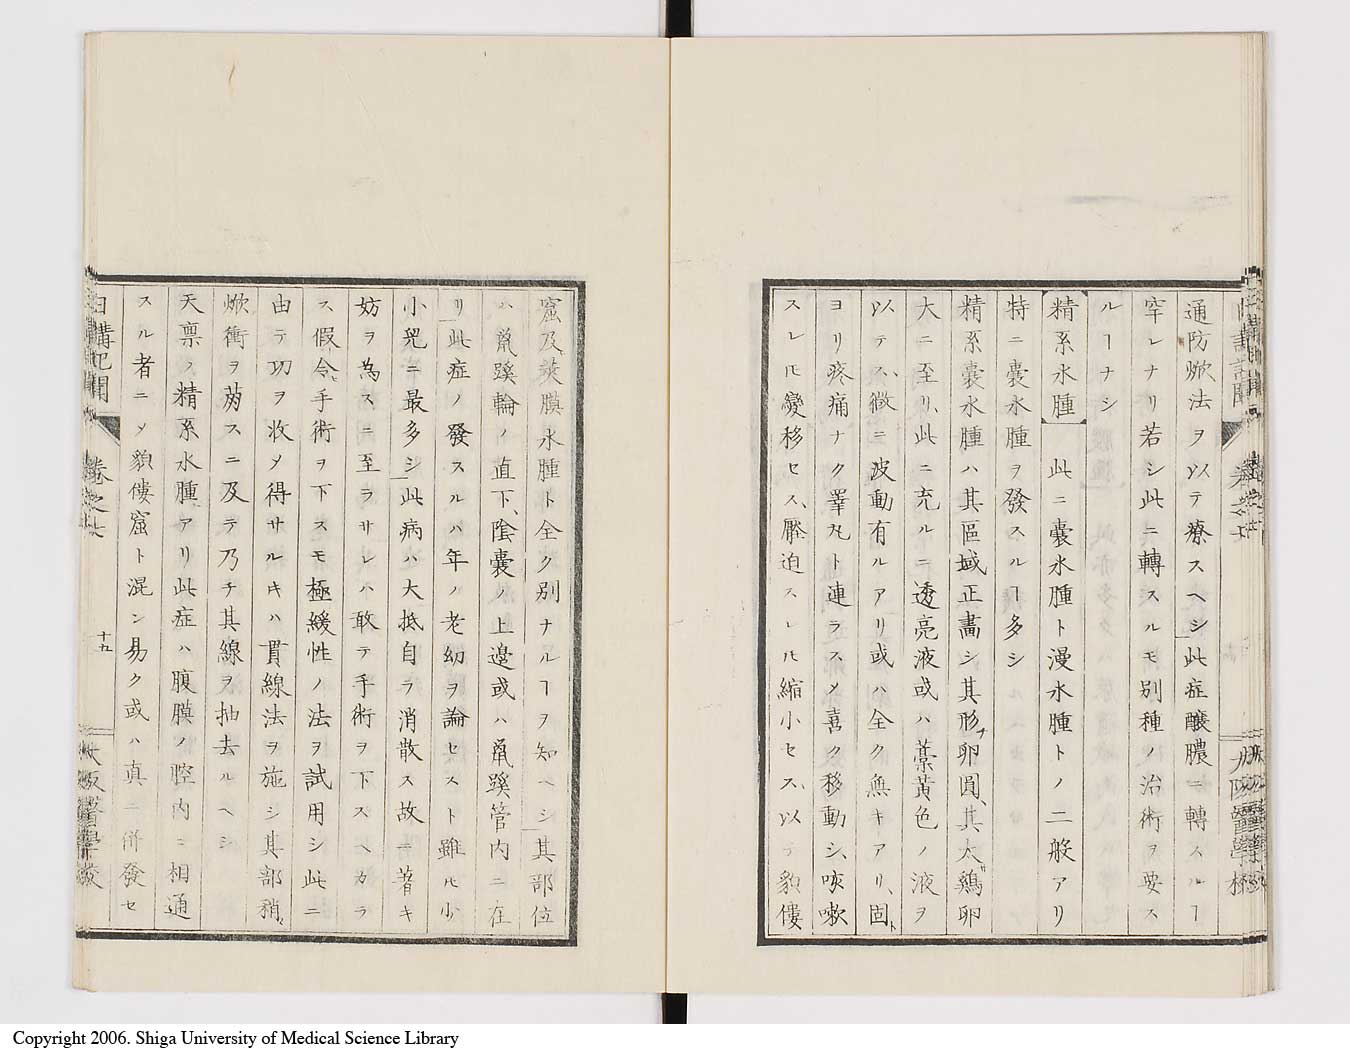 通防焮法ヲ以テ療スヘシ此症醸膿ニ轉スルヿ
罕レナリ若シ此ニ轉スルモ別種ノ治術ヲ要ス
ルヿナシ
精系水腫 此ニ嚢水腫ト漫水腫トノ二般アリ
特ニ嚢水腫ヲ發スルヿ多シ
精系嚢水腫ハ其區域正畵シ其形卵圓、其大鷄卵
大ニ至リ、此ニ充ルニ透亮液或ハ藁黃色ノ液ヲ
以テス、微ニ波動有ルアリ或ハ全ク無キアリ、固
ヨリ疼痛ナク睾丸ト連ラスメ喜ク移動シ、咳嗽
スレㇳモ變移セス、壓迫スレㇳモ縮小セス、以テ豹僂
窟及莢膜水腫ト全ク別ナルヿヲ知ヘシ其部位
ハ鼠蹊輪ノ直下、陰嚢ノ上邉或ハ鼠蹊管内ニ在
リ此症ノ發スルハ年ノ老幼ヲ論セスト雖ㇳモ少
小兒ニ最多シ此病ハ大抵自ラ消散ス故ニ著キ
妨ヲ為スニ至ラサレハ敢テ手術ヲ下スヘカラ
ス假令手術ヲ下スモ極緩性ノ法ヲ試用シ此ニ
由テ功ヲ收メ得サルキハ貫線法ヲ施シ其部稍
焮衝ヲ萠スニ及テ乃チ其線ヲ抽去ルヘシ
天禀ノ精系水腫アリ此症ハ腹膜ノ腔内ニ相通
スル者ニメ豹僂窟ト混ン易ク或ハ真ニ併發セ
日講記聞 卷之七 十五 大阪醫學校
Copyright 2006. Shiga University of Medical Science Library